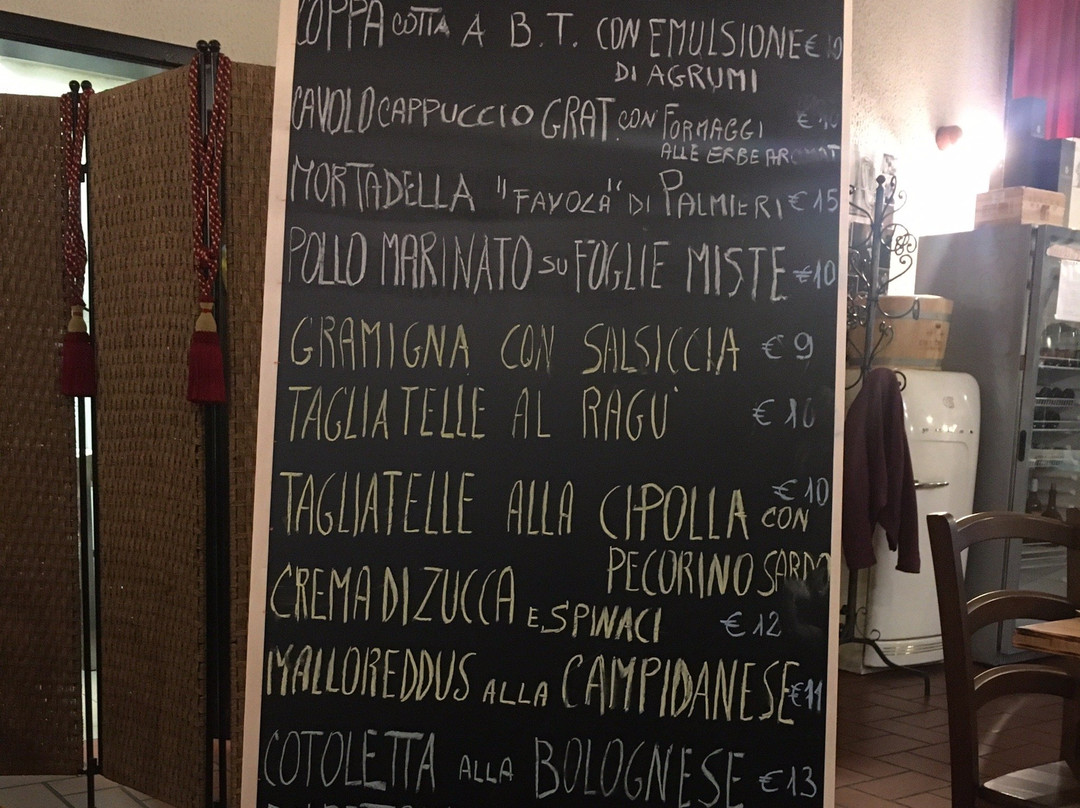 COPPA COTTA A B.T. CON EMULSIONE €10
DI AGRUMI
CAVOLO CAPPUCCIO GRAT. CON FORMAGGI
ALLE ERBE AROMAT
MORTADELLA "FAVOLA" DI PALMIERI €15
POLLO MARINATO SU FOGLIE MISTE €10
GRAMIGNA CON SALSICCIA €9
TAGLIATELLE AL RAGU' €10
TAGLIATELLE ALLA CIPOLLA €10
CON
PECORINO SARDO
CREMA DI ZUCCA E SPINACI €12
MALLOREDDUS ALLA CAMPIDANESE €11
COTOLETTA ALLA BOLOGNESE €13